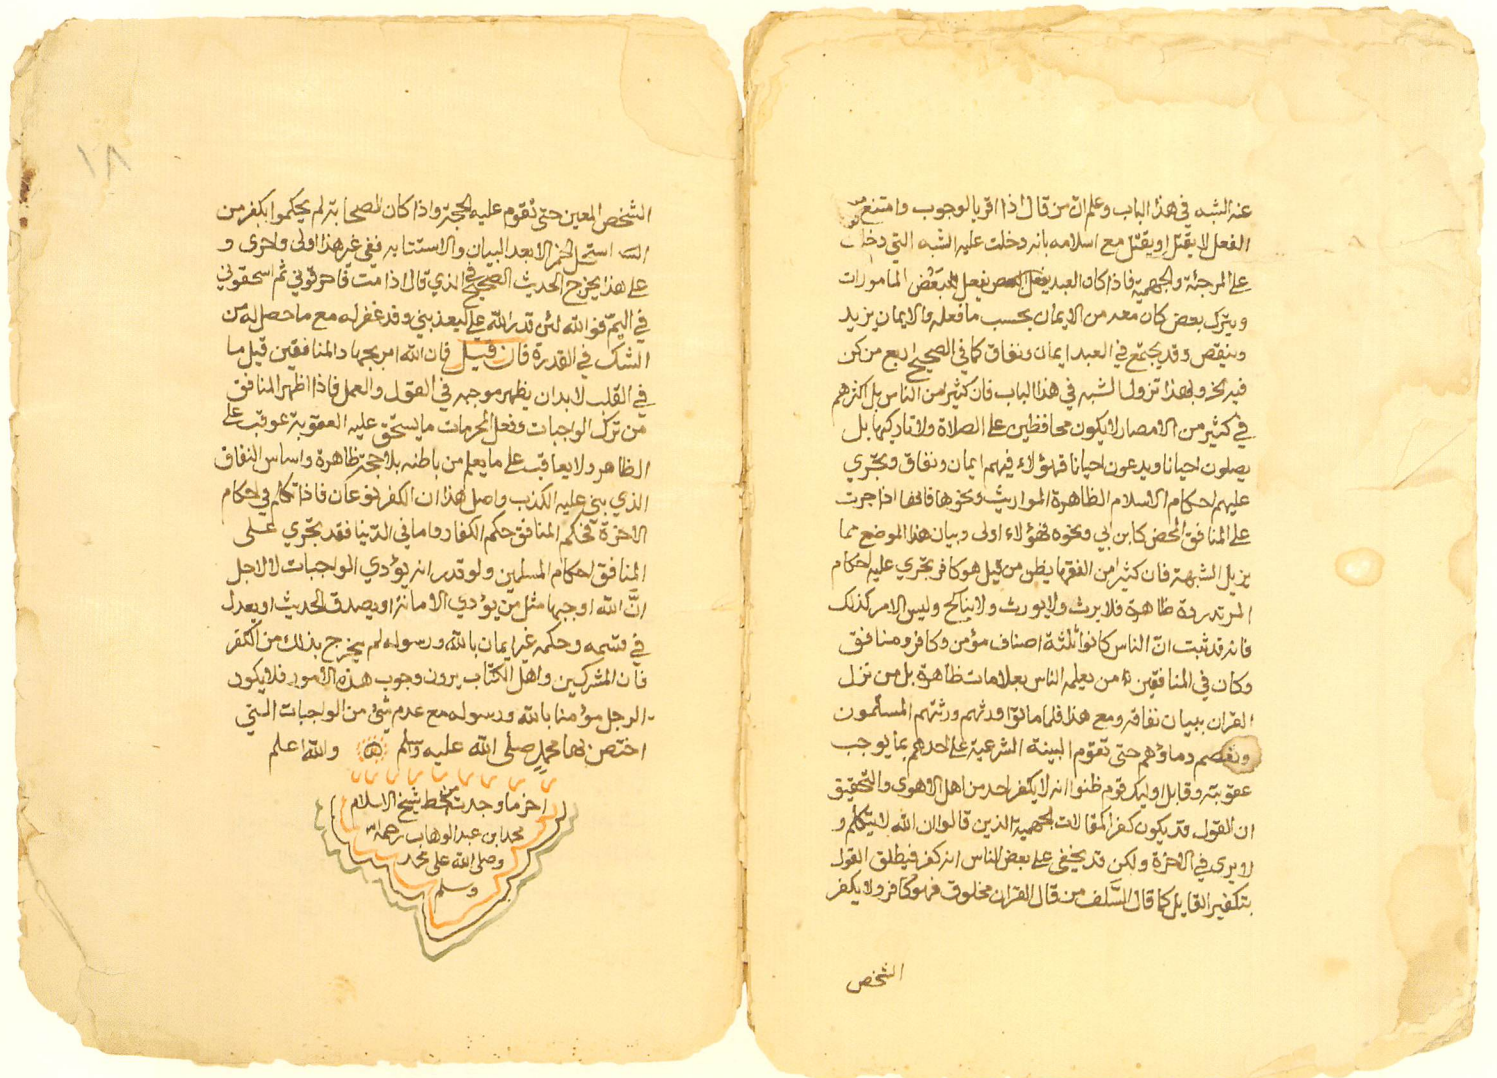 عنه الشبه في هذا الباب وعلم ان من قال اذا اقر بالوجوب وامتنع من
الفعل لا يقتل او يقتل مع اسلامه بانه دخلت عليه الشبه التي دخلت
على المرجئة والجهمية فاذا كان العبد يفعل بعض المامورات
ويترك بعض كان معه من الايمان بحسب ما فعله والايمان يزيد
وينقص وقد يجتمع في العبد ايمان ونفاق كما في الصحيح اربع من كن
فيه الخ وبهذا تزول الشبه في هذا الباب فان كثير من الناس بل اكثرهم
في كثير من الامصار لا يكون محافظين على الصلاة ولا تاركيها بل
يصلون احيانا ويدعون احيانا فهؤلاء فيهم ايمان ونفاق وتجري
عليهم احكام الاسلام الظاهرة المواريث ونحوها فانها اذا جرت
على المنافق المحض كابن ابي ونحوه فهؤلاء اولى وبيان هذا الموضع مما
يزيل الشبهة فان كثير من الفقها يظن من قيل هو كافر تجري عليه احكام
المرتد ردة ظاهرة فلا يرث ولا يورث ولا يناكح وليس الامر كذلك
فانه قد ثبت ان الناس كانوا ثلثة اصناف مؤمن وكافر ومنافق
وكان في المنافقين من يعلمه الناس بعلامات ظاهرة بل من نزل
القران ببيان نفاقه ومع هذا فلما ماتوا ورثهم ورثتهم المسلمون
وتعصم دماؤهم حتى تقوم البينة الشرعية على احدهم بما يوجب
عقوبته وقابل اوليك قوم ظنوا انه لا يكفر احد من اهل الاهوى والتحقيق
ان القول قد يكون كفرا كمقالات الجهمية الذين قالوا ان الله لا يتكلم و
لا يرى في الاخرة ولكن قد يخفى على بعض الناس انه كفر فيطلق القول
بتكفير القايل كما قال السلف من قال القران مخلوق فهو كافر ولا يكفر
الشخص
١٨
الشخص المعين حتى تقوم عليه الحجة واذا كان الصحابة لم يحكموا بكفر من
استحل الخمر الا بعد البيان والاستتابه ففي غير هذا اولى واحرى و
على هذا يخرج الحديث الصحيح في الذي قال اذا مت فاحرقوني ثم اسحقوني
في اليم فوالله لئن قدر الله علي ليعذبني وقد غفر له مع ما حصل له من
الشك في القدرة فان قيل فان الله امر بجهاد المنافقين قيل ما
في القلب لا بد ان يظهر موجبه في القول والعمل فاذا اظهر المنافق
من ترك الواجبات وفعل المحرمات ما يستحق عليه العقوبة عوقب على
الظاهر ولا يعاقب على ما يعلم من باطنه بلا حجة ظاهرة واساس النفاق
الذي بني عليه الكذب واصل هذا ان الكفر نوعان فاذا تكلم في احكام
الاخرة فحكم المنافق حكم الكفار واما في الدنيا فقد تجري على
المنافق احكام المسلمين ولو قدر انه يؤدي الواجبات لا لاجل
ان الله اوجبها مثل من يؤدي الامانة او يصدق الحديث او يعدل
في قسمه وحكمه غير ايمان بالله ورسوله لم يخرج بذلك من الكفر
فان المشركين واهل الكتاب يرون وجوب هذه الامور فلا يكون
الرجل مؤمنا بالله ورسوله مع عدم شئ من الواجبات التي
اختص بها محمد صلى الله عليه وسلم والله اعلم
اخر ما وجدت من خط شيخ الاسلام
محمد ابن عبد الوهاب رحمه الله
وصلى الله على محمد
وسلم